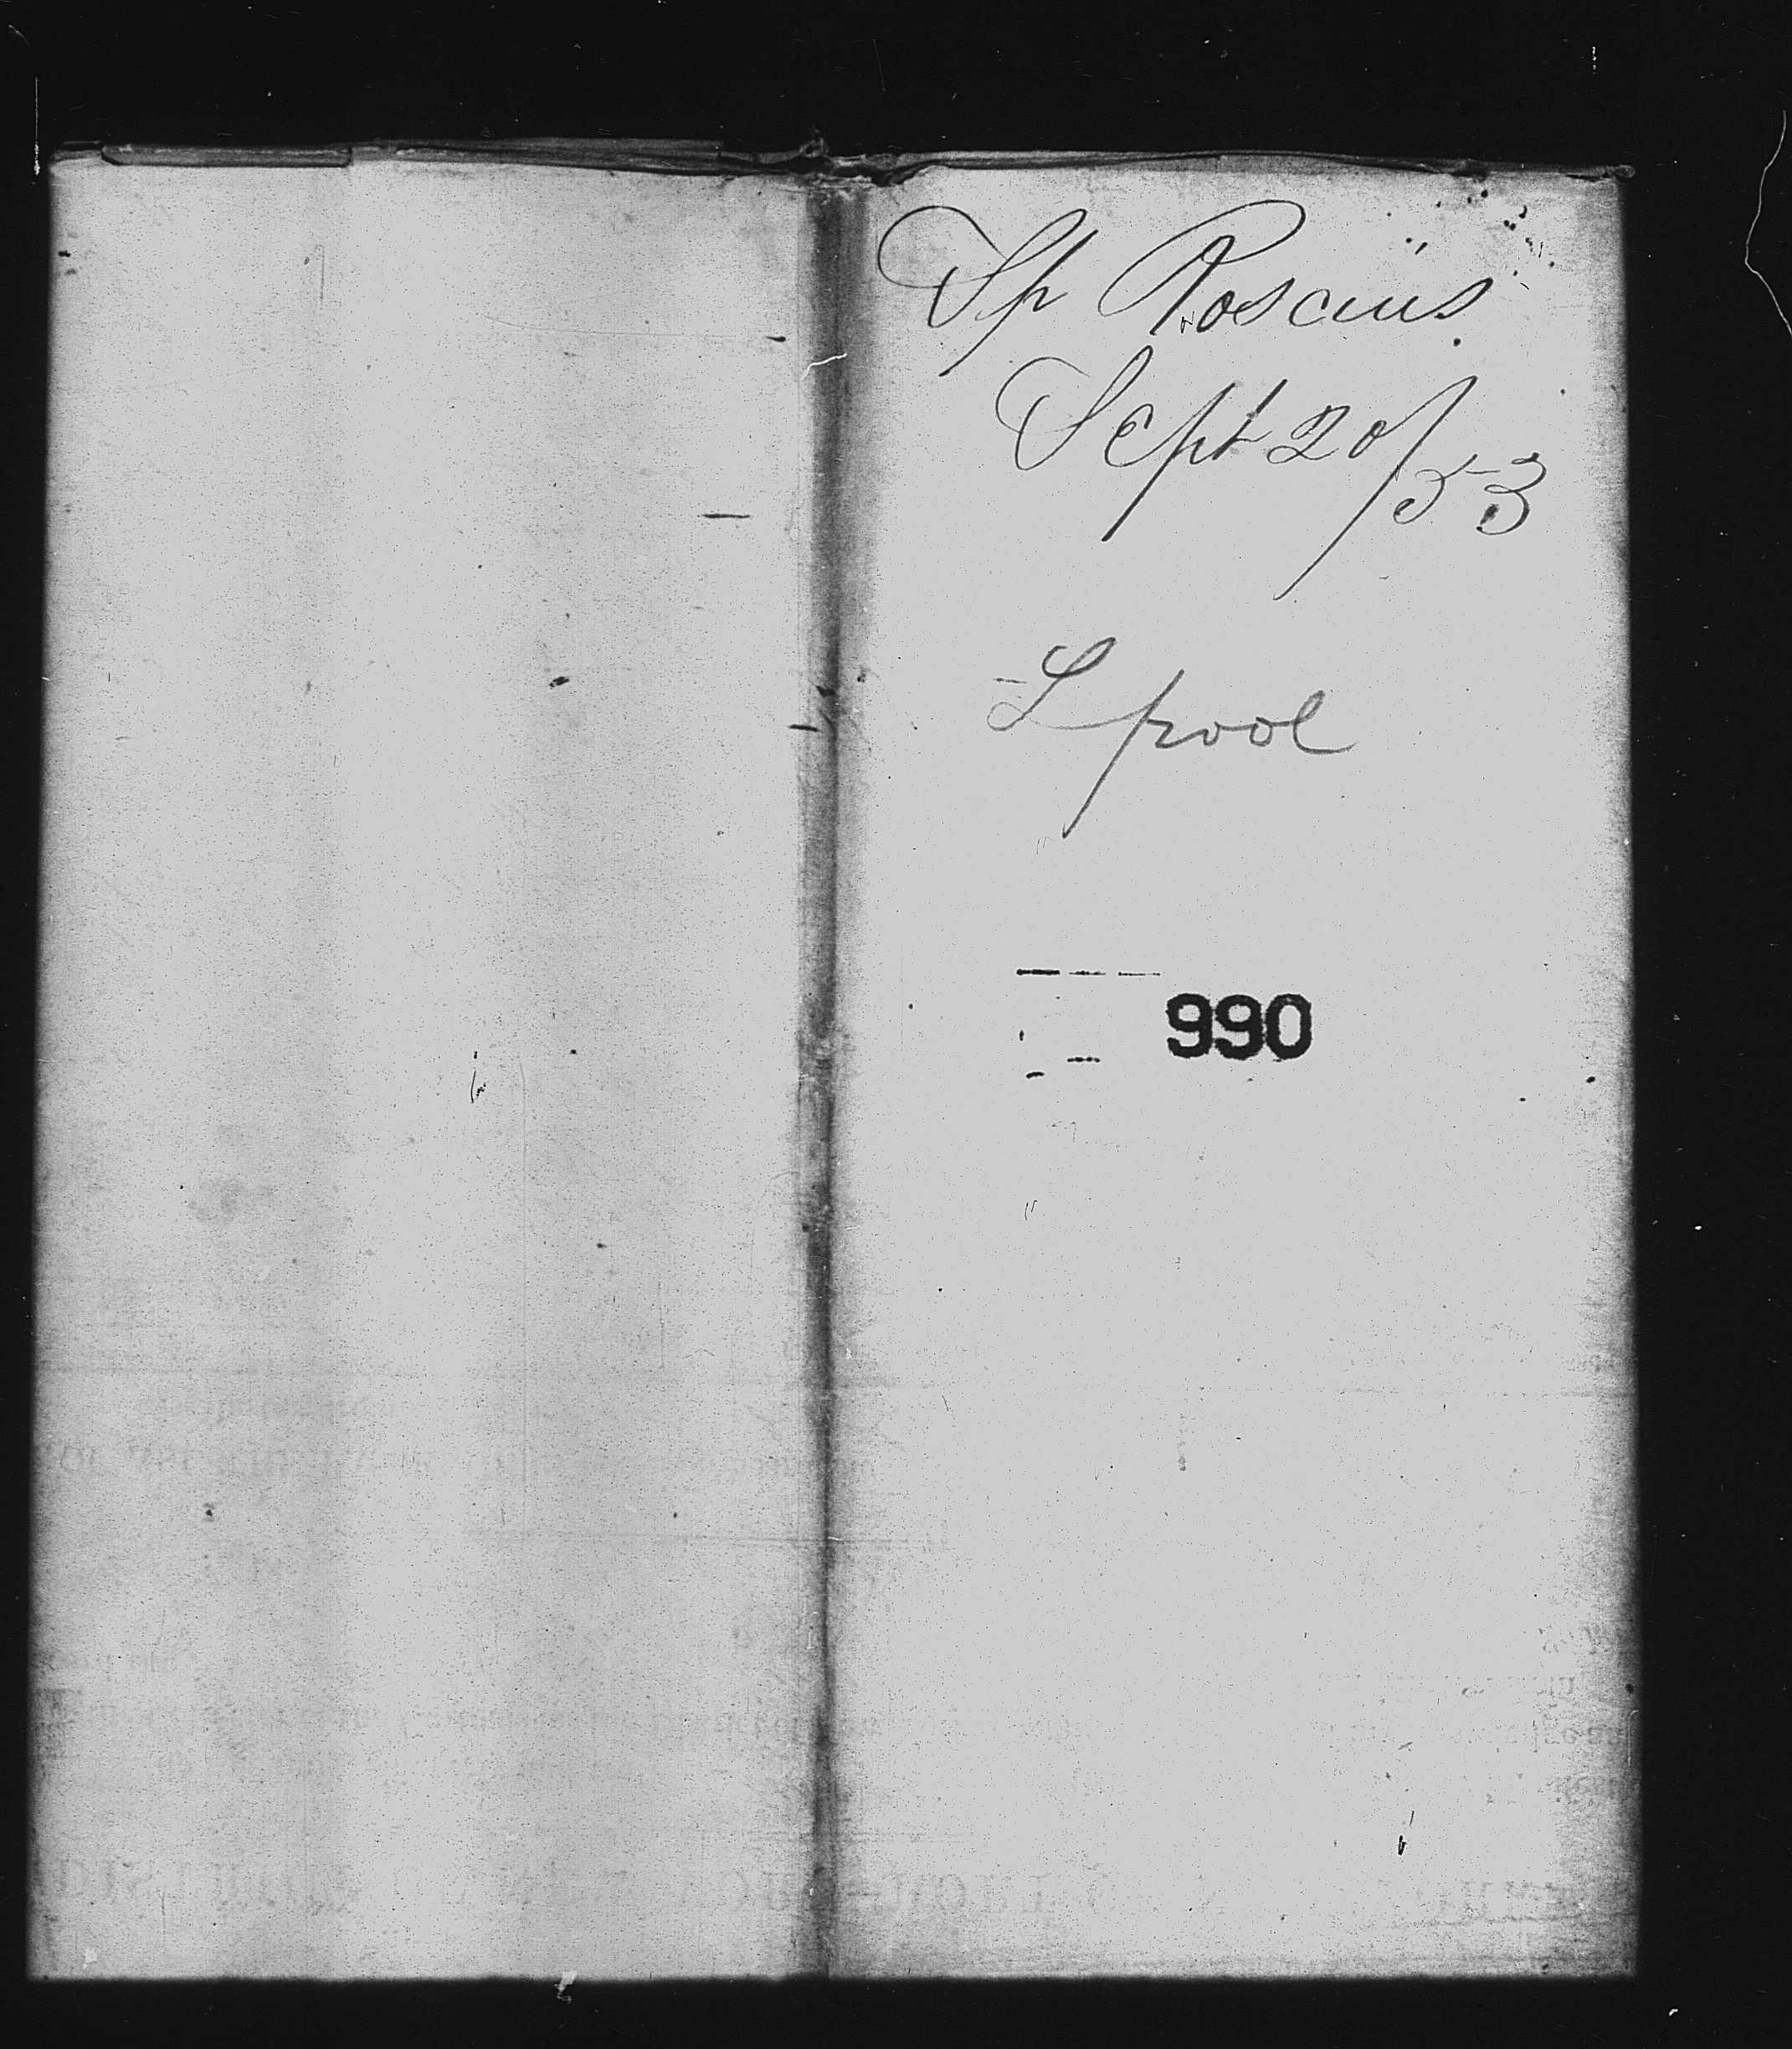 Sh Roscius
Sept 20/53
Lpool
990